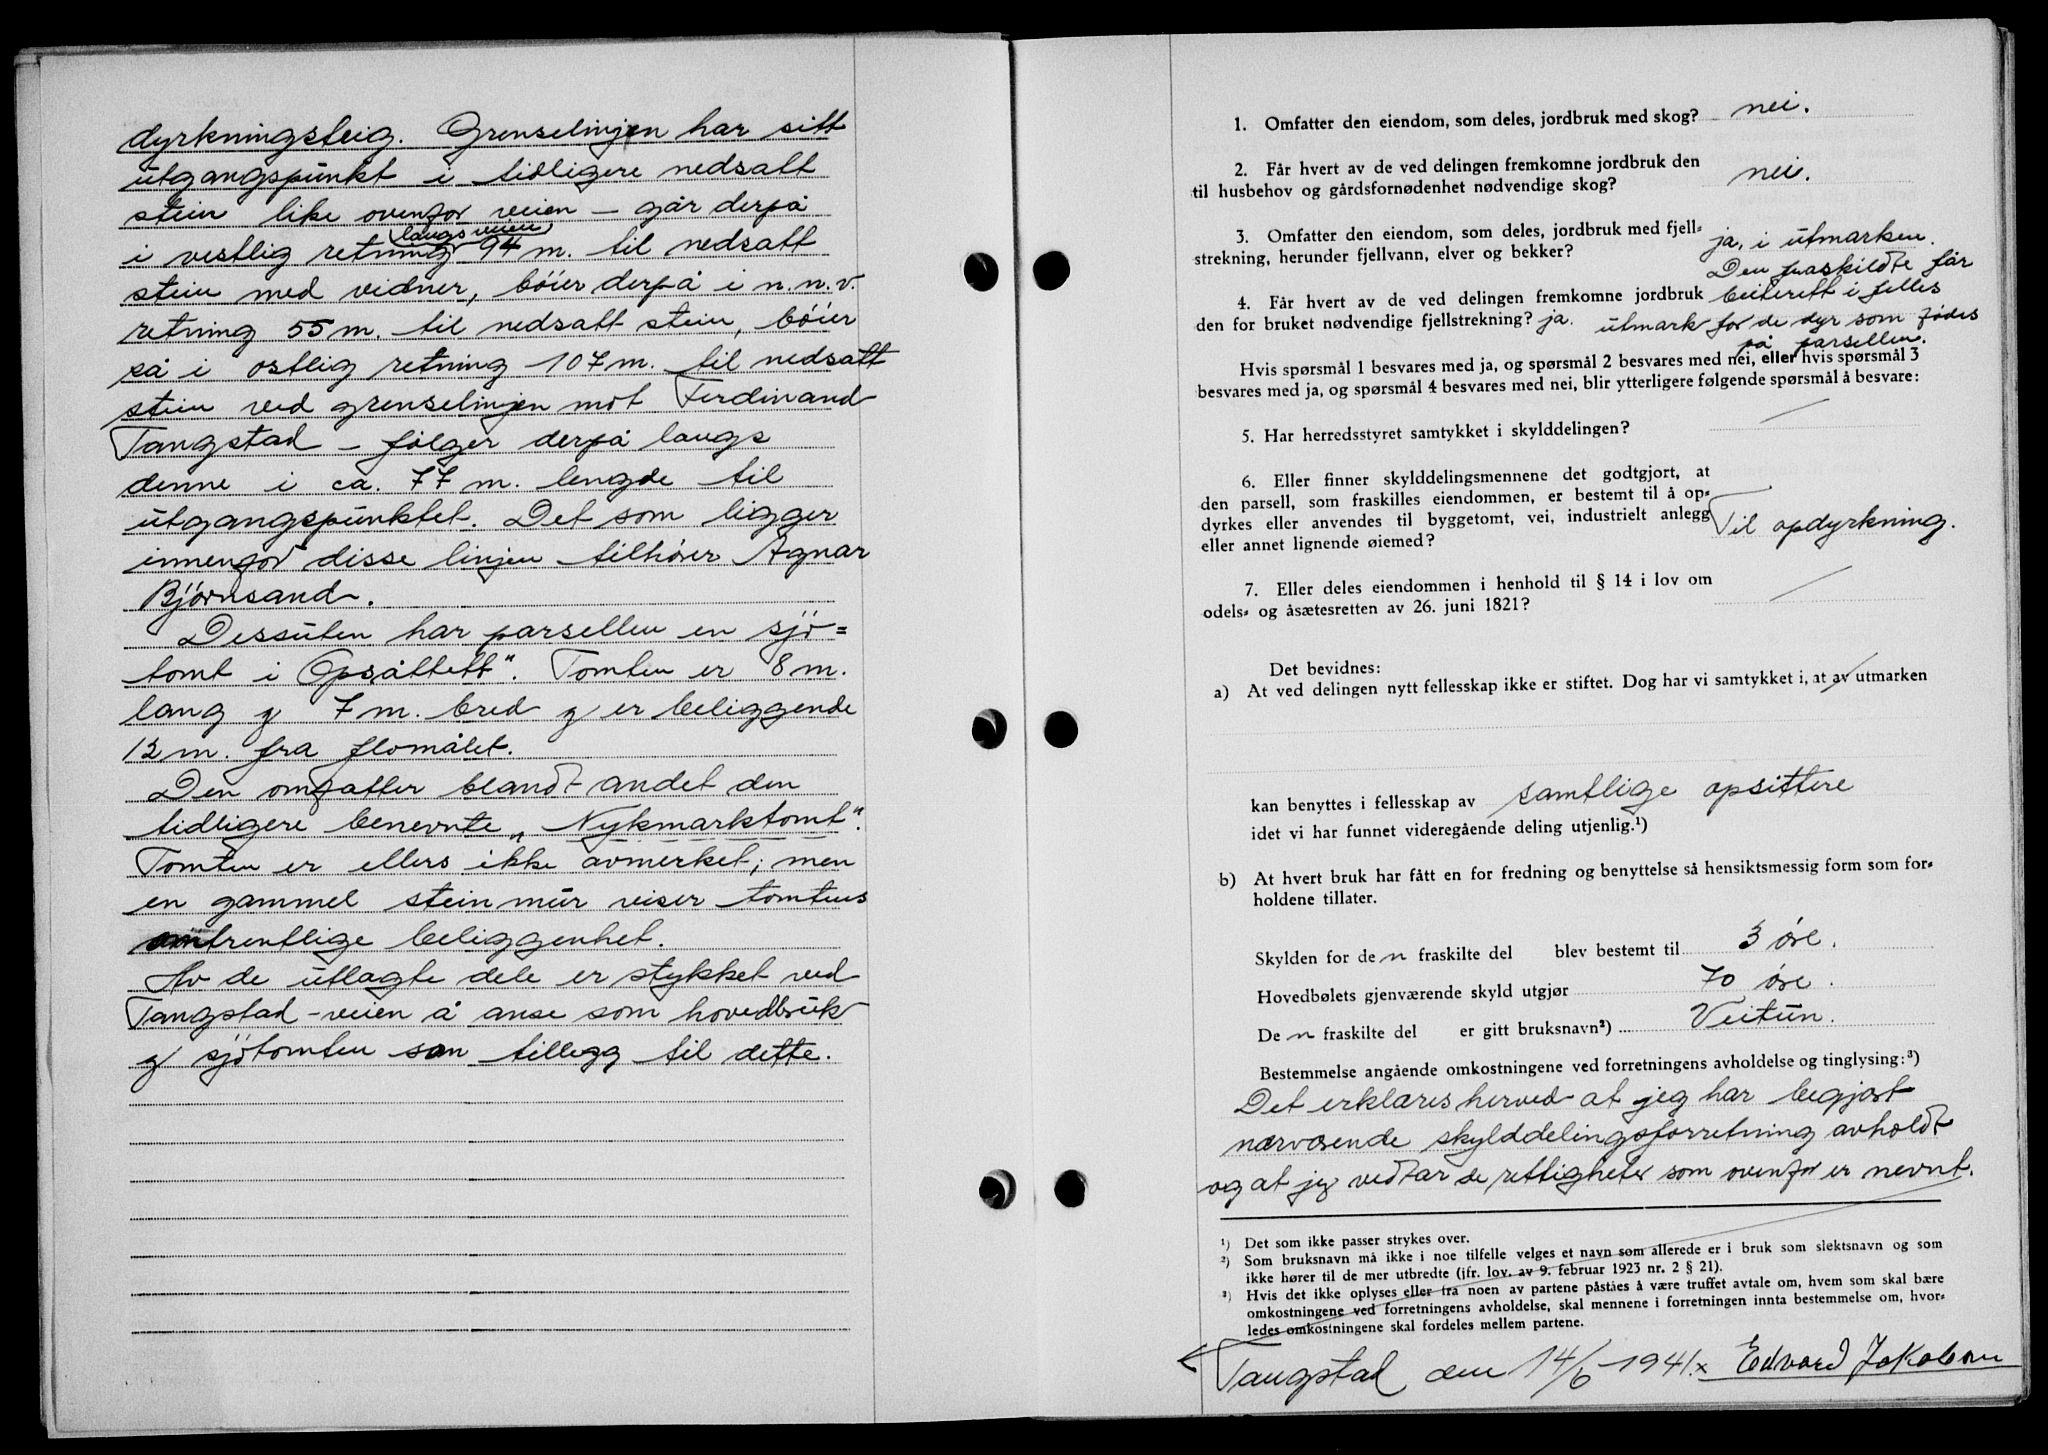 dyrkningsteig. Grenselinjen har sitt
utgangspunkt i tidligere nedsatt
stein like ovenfor veien – går derpå
langs veien
i vestlig retning 94 m. til nedsatt
stein med vidner, böier derpå i n.n.v.
retning 55 m. til nedsatt stein, böier
så i ostlig retning 107 m. til nedsatt
stein ved grenselinjen mot Ferdinand
Tangstad – fölger derpå langs
denne i ca. 77 m. lengde til
utgangspunktet. Det som ligger
innenfor disse linjen tilhörer Agnar
Björnsand.
Dessuten har parsellen en sjö=
tomt i Opsåttett". Tomten er 8 m.
lang og 7 m. bred og er beliggende
12 m. fra flomålet.
Den omfatter blandt andet den
tidligere benevnte „Nykmarktomt".
Tomten er ellers ikke avmerket; men
en gammel steinmur viser tomtens
omtrentlige beliggenhet.
Av de utlagte dele er stykket ved
Tangstad-veien å anse som hovedbruk
og sjötomten som tillegg til dette.
1. Omfatter den eiendom, som deles, jordbruk med skog? nei.
2. Får hvert av de ved delingen fremkomne jordbruk den
til husbehov og gårdsfornødenhet nødvendige skog? nei.
3. Omfatter den eiendom, som deles, jordbruk med fjell=
strekning, herunder fjellvann, elver og bekker? ja, i utmarken.
Den fraskildte får
4. Får hvert av de ved delingen fremkomne jordbruk beiterett i felles
den for bruket nødvendige fjellstrekning? ja. utmark for de dyr som födes
på parsellen.
Hvis spørsmål 1 besvares med ja, og spørsmål 2 besvares med nei, eller hvis spørsmål 3
besvares med ja, og spørsmål 4 besvares med nei, blir ytterligere følgende spørsmål å besvare:
5. Har herredsstyret samtykket i skylddelingen? /
6. Eller finner skylddelingsmennene det godtgjort, at
den parsell, som fraskilles eiendommen, er bestemt til å op=
dyrkes eller anvendes til byggetomt, vei, industrielt anlegg
eller annet lignende øiemed? Til opdyrkning.
7. Eller deles eiendommen i henhold til § 14 i lov om
odels= og åsætesretten av 26. juni 1821? /
Det bevidnes:
a) At ved delingen nytt fellesskap ikke er stiftet. Dog har vi samtykket i, at av utmarken
kan benyttes i fellesskap av samtlige opsittere
idet vi har funnet videregående deling utjenlig.¹)
b) At hvert bruk har fått en for fredning og benyttelse så hensiktsmessig form som for=
holdene tillater.
Skylden for den fraskilte del blev bestemt til 3 öre.
Hovedbølets gjenværende skyld utgjør 70 öre.
Den fraskilte del er gitt bruksnavn²) Veitun.
Bestemmelse angående omkostningene ved forretningens avholdelse og tinglysing:³)
Det erklæres herved at jeg har begjært
nærværende skylddelingsforretning avholdt
og at jeg vedtar de rettigheter som ovenfor er nevnt.
¹) Det som ikke passer strykes over.
²) Som bruksnavn må ikke i noe tilfelle velges et navn som allerede er i bruk som slektsnavn og som
ikke hører til de mer utbredte (jfr. lov. av 9. februar 1923 nr. 2 § 21).
³) Hvis det ikke oplyses eller fra noen av partene påståes å være truffet avtale om, hvem som skal bære
omkostningene ved forretningens avholdelse, skal mennene i forretningen innta bestemmelse om, hvor=
ledes omkostningene skal fordeles mellem partene.
Tangstad den 14/6-1941. x Edvard Jakobsen